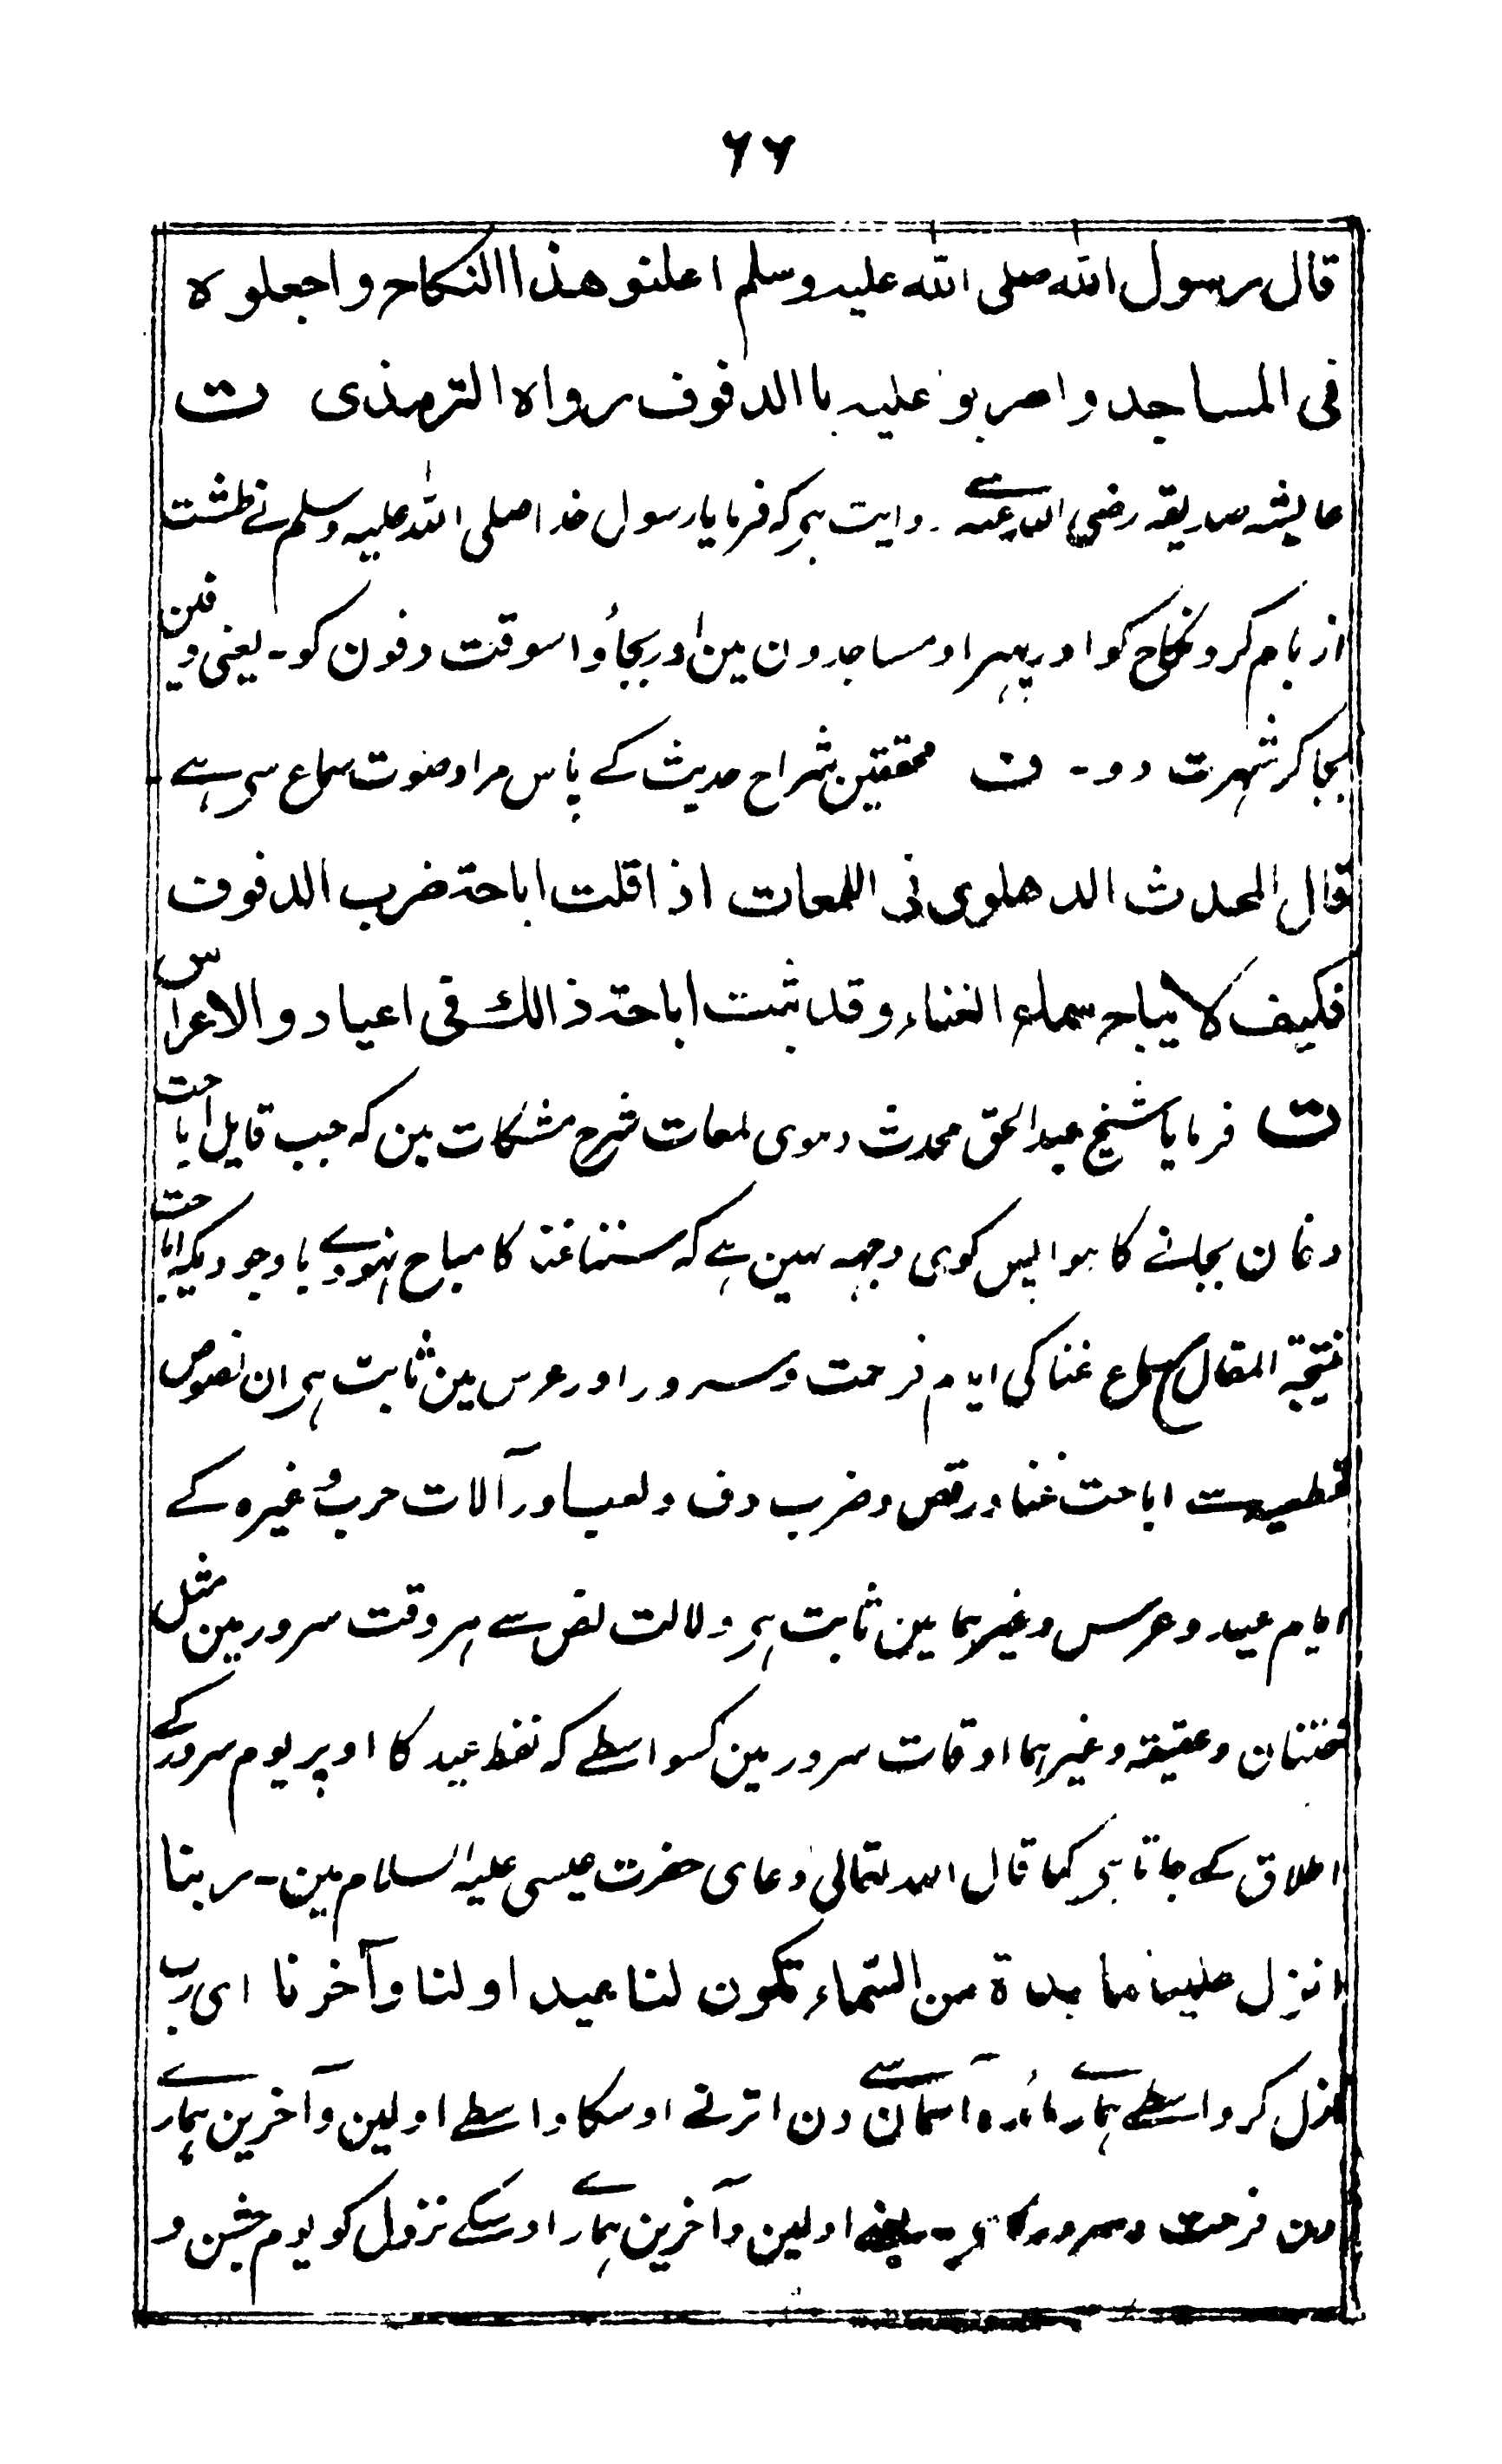 ۶۶
قال رسول الله صلی الله علیه وسلم اعلنو هذا النکاح واجعلوه
فی المساجد واضربو علیه باالدفوف رواه الترمذی ت
عایشہ صدیقہ رضی اللہ عنہ سے روایت ہی کہ فرمایا رسول خدا صلی اللہ علیہ وسلم نے طشت
از بام کرو نکاح کو اور پہراو مساجدون مین اور بجاؤ اسوقت دفون کو ۔ یعنی دفین
بجا کر شہرت دو ۔ ف محققین شراح حدیث کے پاس مراد صوت سماع سی ہے ۔
قال المحدث الدهلوی فی اللمعات اذا قلت اباحة ضرب الدفوف
فکیف لا یباح سماع الغناء وقد ثبت اباحة ذالك فی اعیاد والاعراس
ت فرمایا شیخ عبدالحق محدث دہلوی لمعات شرح مشکات مین کہ جب قایل اباحت
دفان بجانے کا ہوا پس کوہی وجہہ نہین ہے کہ سننا غنا کا مباح نہووے باوجودیکہ اباحت
نتیجۃ المقال سماع غنا کی ایام فرحت وسرور اور عرس مین ثابت ہی ان نصوص
قطعیہ سے اباحت غنا ورقص وضرب دف ولعب اور آلات حرب وغیرہ کے
ایام عید وعرس وغیرہما مین ثابت ہی دلالت نص سے ہر وقت سرور مین مثل
ختنان وعقیقہ وغیرہما اوقات سرور مین کسواسطے کہ لفظ عید کا اوپر یوم سرور کے
اطلاق کے جاتا ہی کما قال اللہ تعالی دعای حضرت عیسی علیہ السلام مین ۔ ربنا
انزل علینا مایدة من السّماء تکون لنا عید اولنا وآخرنا ای رب
نزل کر واسطے ہمارے مائدہ آسمان سے دن اترنے اوسکا واسطے اولین وآخرین ہمارے
دن فرحت وسرور کا ہی ۔ یعنے اولین وآخرین ہمارے اوسکے نزول کو یوم جشن و